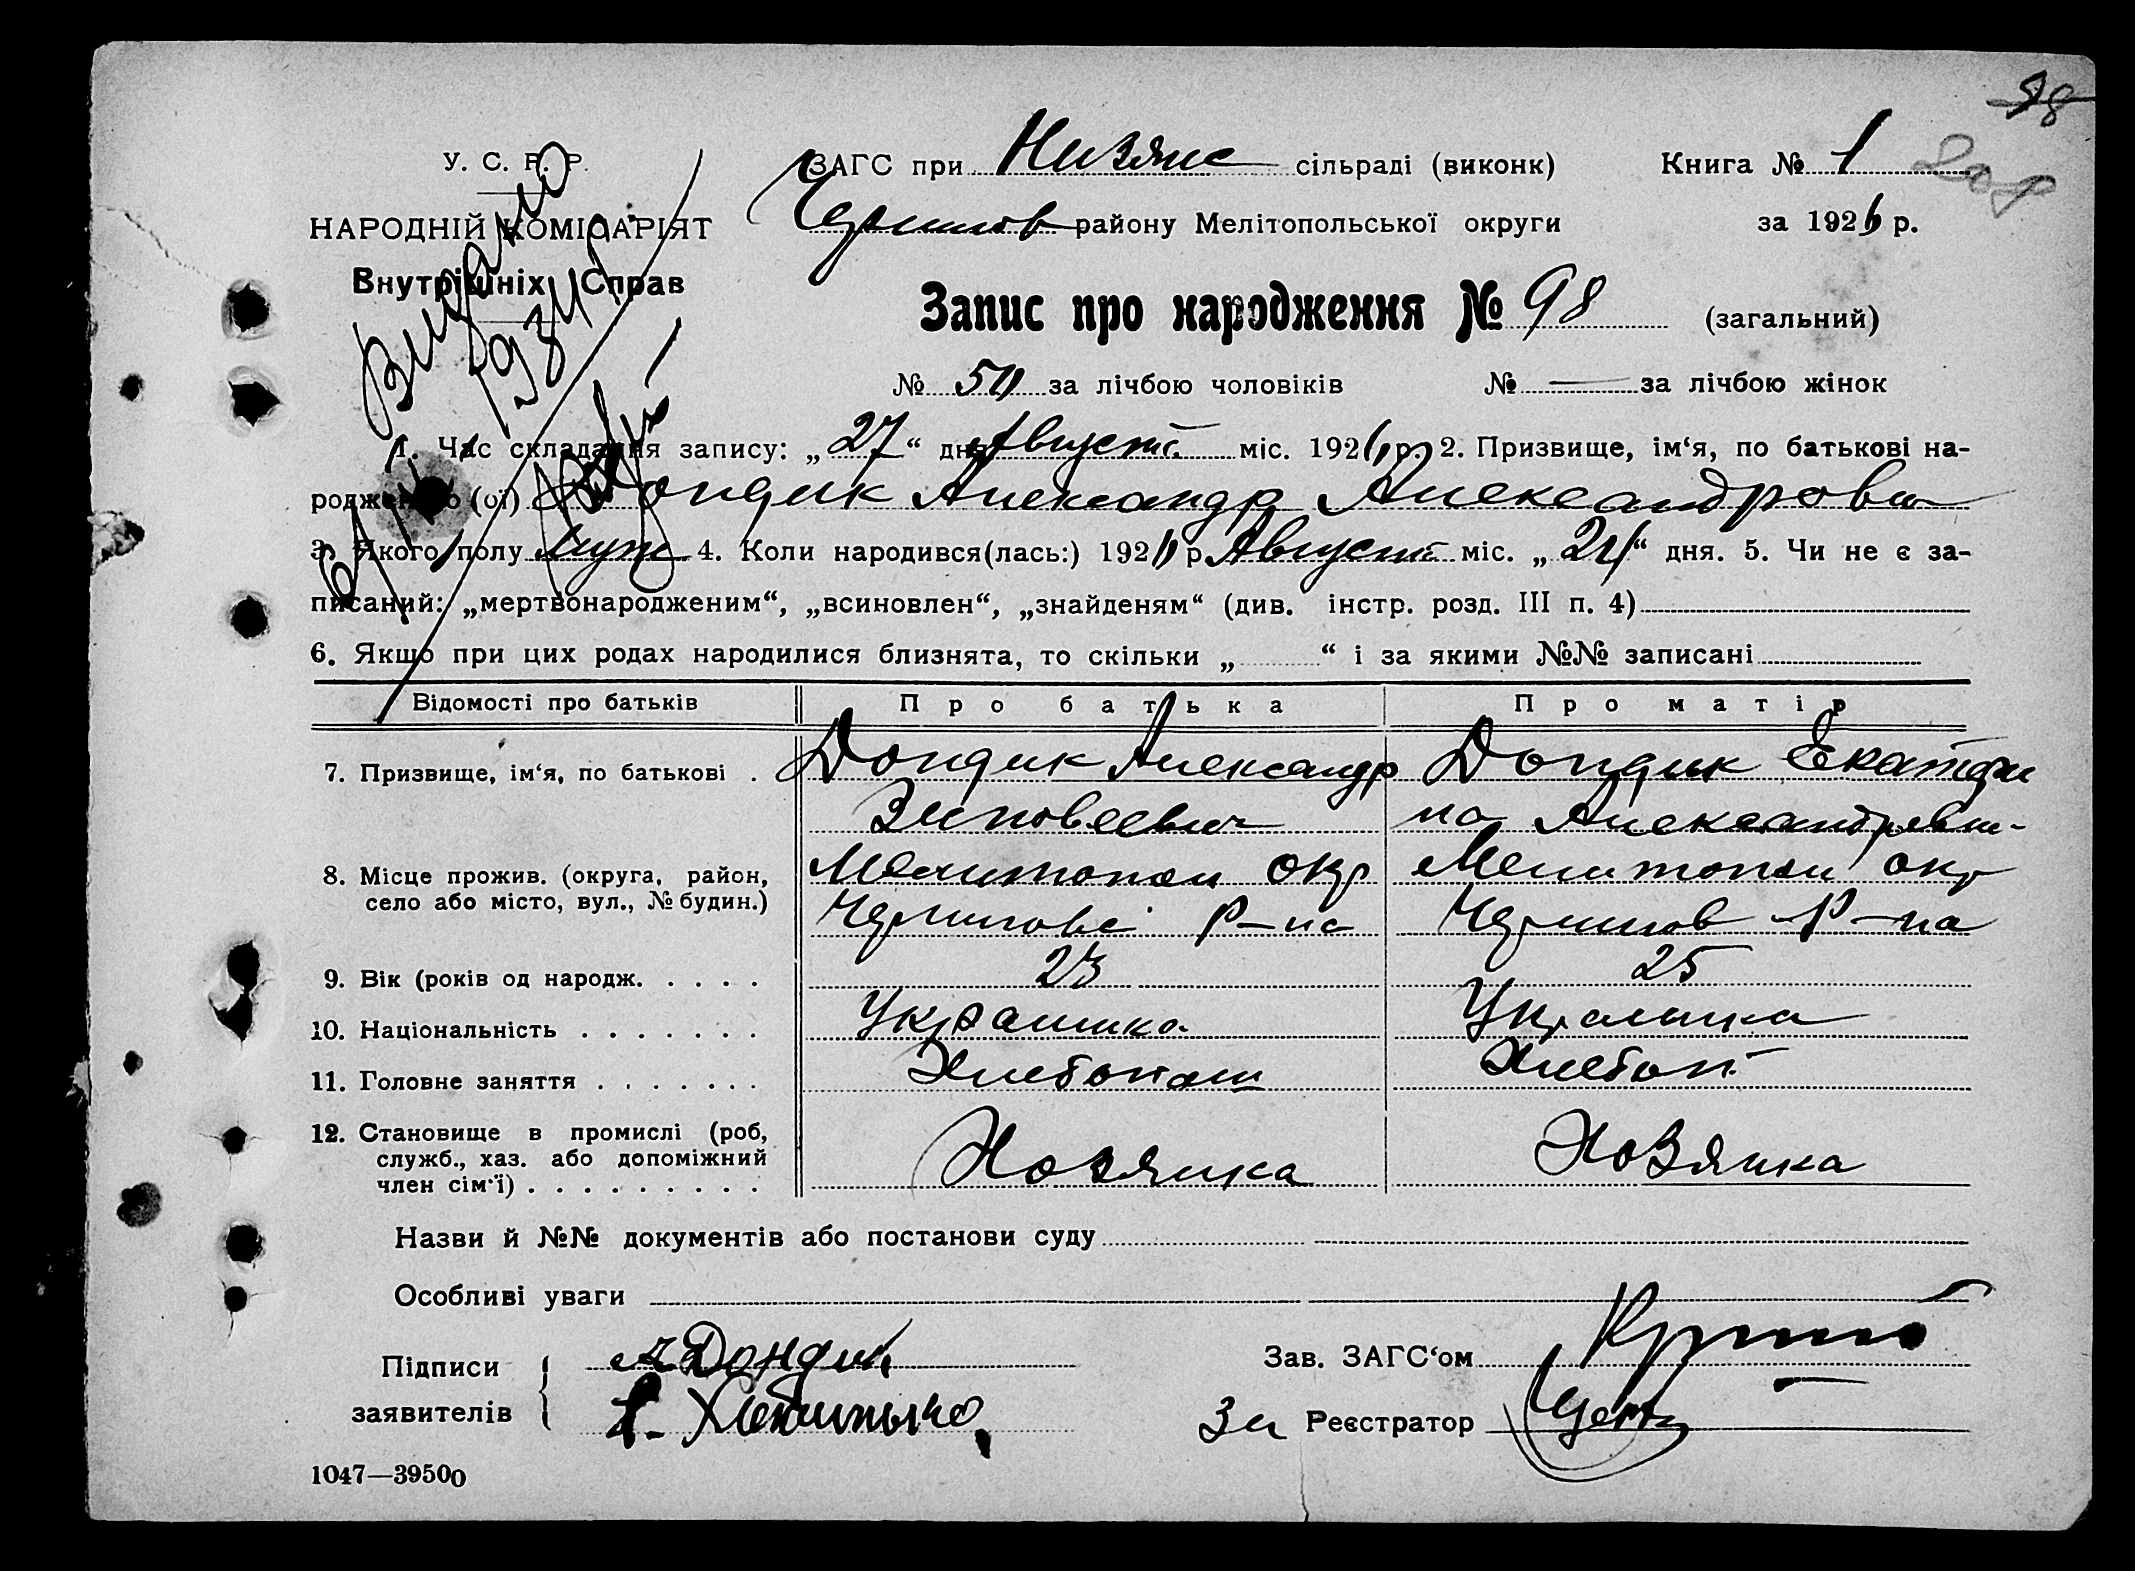 98
208
У. С. Р. Р.
НАРОДНІЙ КОМІСАРІЯТ
Внутрішніх Справ
Видано
ЗАГС при Низяне сільраді (виконк)
Книга № 1
Черниговразйону Мелітопольської округи
за 1926 р.
Запис про народження № 98 (загальний)
№ 50 за лічбою чоловіків № — за лічбою жінок
1. Час складання запису: „27“ дня Август. міс. 1926 р. 2. Призвище, ім‘я, по батькові на-
родженого (ої) Дондик Александр Александрович
3. Якого полу муж 4. Коли народився(лась:) 1926 р. Август міс. „24“ дня. 5. Чи не є за-
писаний: „мертвонародженим“, „всиновлен“, „знайденям“ (див. інстр. розд. III п. 4)
6. Якщо при цих родах народилися близнята, то скільки „ “ і за якими №№ записані
Відомості про батьків Про батька Про матір
7. Призвище, ім‘я, по батькові . Дондик Александр Дондик Екатери
Зиновеевич на Александровн-
8. Місце прожив. (округа, район, Мелитопол окр Мелитопол окр
село або місто, вул., № будин.) Чернигов Р-на Чернигов Р-на
9. Вік (років од народж. . . . . 23 25
10. Національність . . . . . . . Украинка Украинка
11. Головне заняття . . . . . . . Хлебопаш Хлебоп
12. Становище в промислі (роб, Хозяика Хозяика
служб., хаз. або допоміжний
член сім‘ї) . . . . . . . . .
Назви й №№ документів або постанови суду
Особливі уваги
Підписи А Дондик
заявителів
Зав. ЗАГС‘ом
За Реєстратор
1047—39500